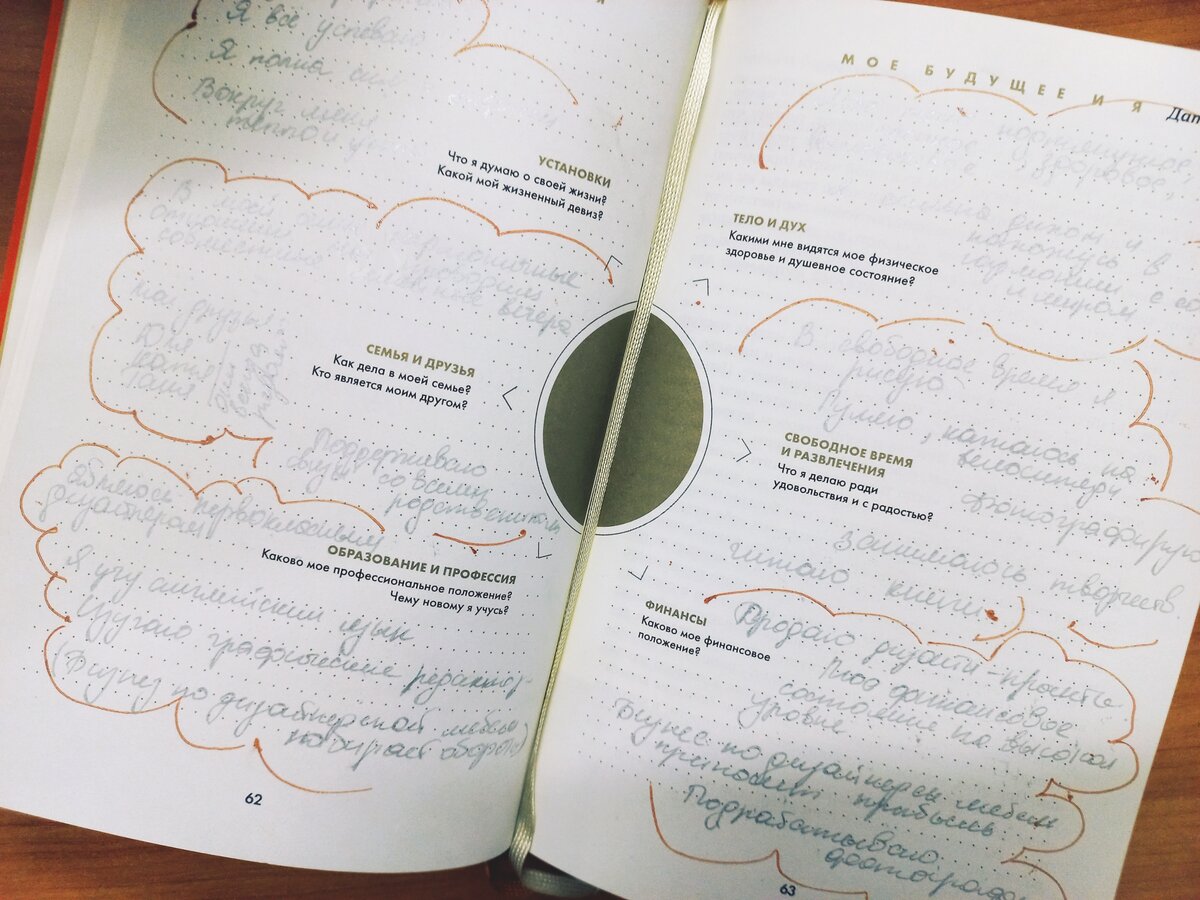 Я все успеваю
Я полна сил
Вокруг меня
УСТАНОВКИ
Что я думаю о своей жизни?
Какой мой жизненный девиз?
В моей
гармоничные
вечера
Мои друзья:
Юля
Катя
СЕМЬЯ И ДРУЗЬЯ
Как дела в моей семье?
Кто является моим другом?
Поддерживаю
связь со всеми
родственниками
Являюсь
дизайнером
ОБРАЗОВАНИЕ И ПРОФЕССИЯ
Каково мое профессиональное положение?
Чему новому я учусь?
Я учу английский язык
Изучаю графические редактор
(Бизнес по дизайнерской мебели
набирает обороты)
62
МОЕ БУДУЩЕЕ И Я
Дат
подтянутое
здоровое,
духом и
нахожусь в
гармонии с
и миром
ТЕЛО И ДУХ
Какими мне видятся мое физическое
здоровье и душевное состояние?
В свободное время я
рисую
Гуляю, катаюсь на
велосипеде
СВОБОДНОЕ ВРЕМЯ
И РАЗВЛЕЧЕНИЯ
Что я делаю ради
удовольствия и с радостью?
фотографирую
занимаюсь творчеств
читаю книги
ФИНАНСЫ
Каково мое финансовое
положение?
Продаю дизайн-проекты
Мое финансовое
состояние на высоком
уровне
Бизнес по дизайнерск мебели
приносит прибыль
Подрабатываю
фотограф
63